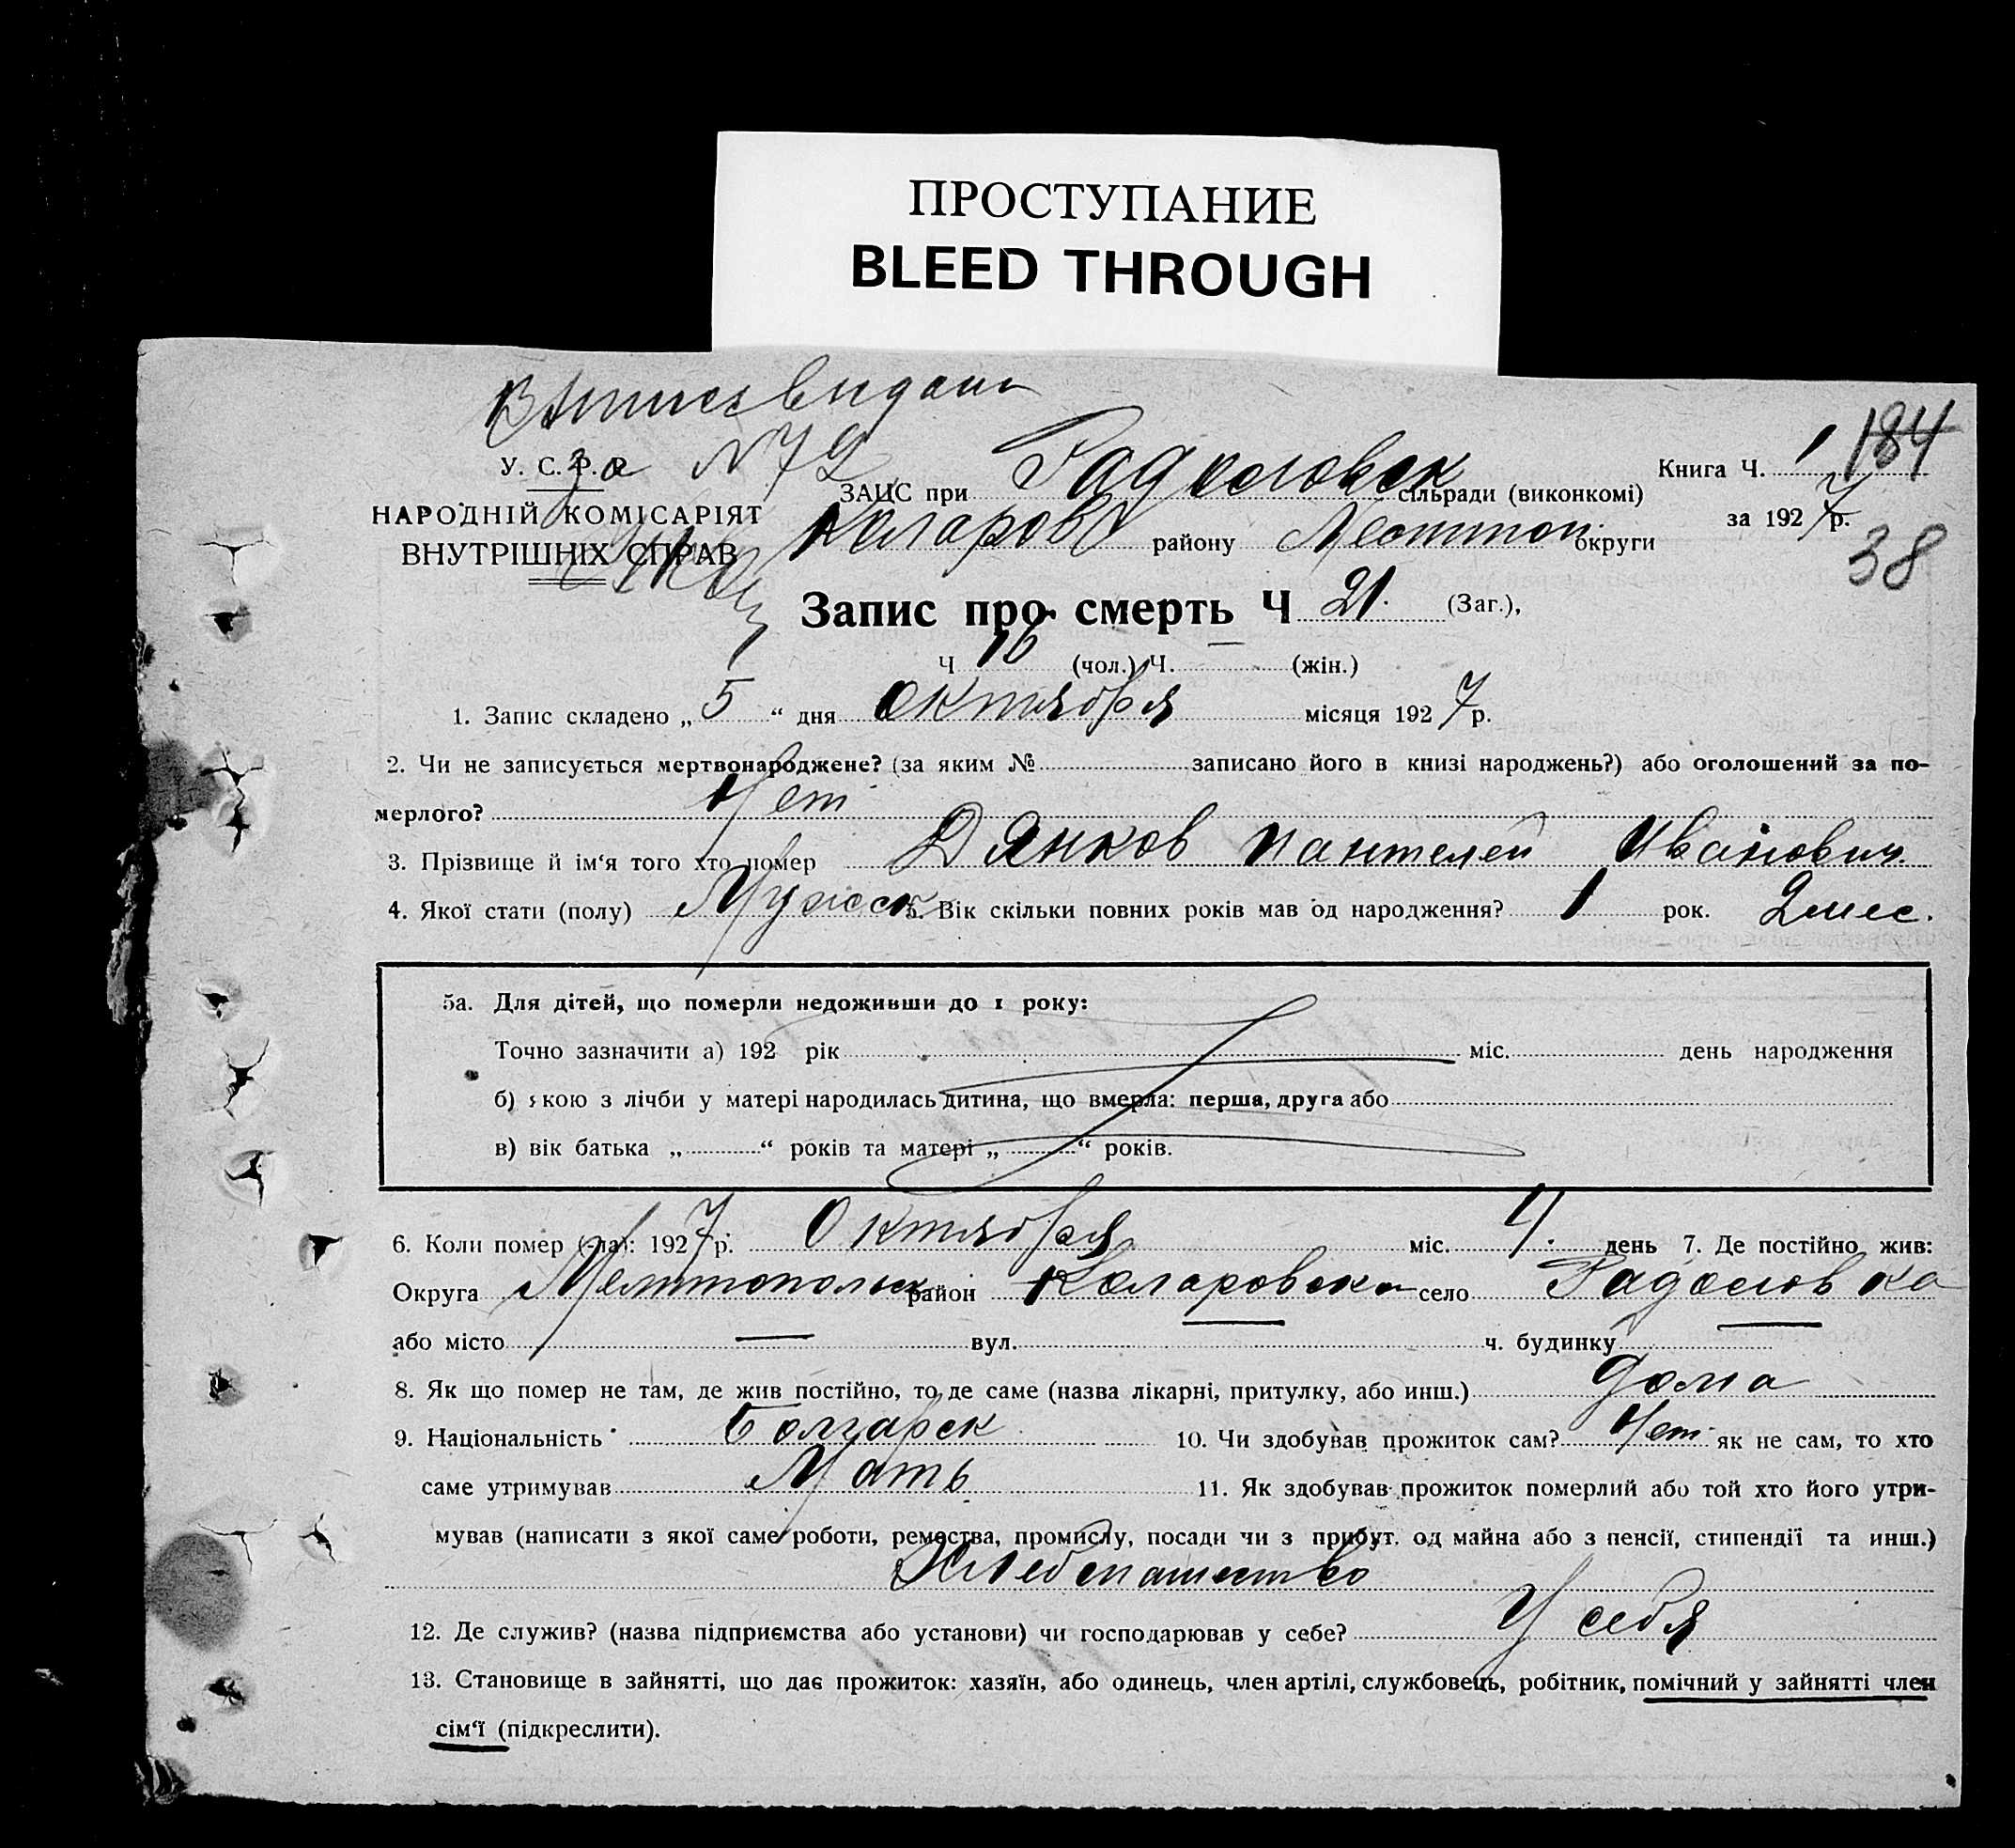 ПРОСТУПАНИЕ
BLEED THROUGH
за N 72
У. С. Р. Р.
НАРОДНІЙ КОМІСАРІЯТ
ВНУТРІШНІХ СПРАВ
Книга Ч. 1 184
ЗАЦС при Радоловск сільради (виконкомі)
за 1927 р.
Коларов району Мелитоп. округи
38
Запис про смерть Ч 21. (Заг.),
Ч 16 (чол.) Ч. — (жін.)
1. Запис складено „ 5 “ дня Октября місяця 1927 р.
2. Чи не записується мертвонароджене? (за яким № записано його в книзі народжень?) або оголошений за по-
мерлого? Нет
3. Прізвище й ім‘я того хто помер Дянков Пантелей Иванович
4. Якої стати (полу) Мужск 5. Вік скільки повних років мав од народження? 1 рок. 2 мес.
5а. Для дітей, що померли недоживши до 1 року:
Точно зазначити а) 192 рік міс. день народження
б) якою з лічби у матері народилась дитина, що вмерла: перша, друга або
в) вік батька „ “ років та матері „ “ років.
6. Коли помер (-ла): 1927 р. Октября міс. 4. день 7. Де постійно жив:
Округа Мелитопольск район Коларовска село Радоловка
або місто — вул. ч. будинку
8. Як що помер не там, де жив постійно, то де саме (назва лікарні, притулку, або инш.) дома
9. Національність Болгарск 10. Чи здобував прожиток сам? Нет як не сам, то хто
саме утримував Мать 11. Як здобував прожиток померлий або той хто його утри-
мував (написати з якої саме роботи, ремества, промислу, посади чи з прибут. од майна або з пенсії, стипендії та инш.)
Хлебопашество
12. Де служив? (назва підприємства або установи) чи господарював у себе? У себя
13. Становище в зайнятті, що дає прожиток: хазяїн, або одинець, член артілі, службовець, робітник, помічний у зайнятті член
сім‘ї (підкреслити).